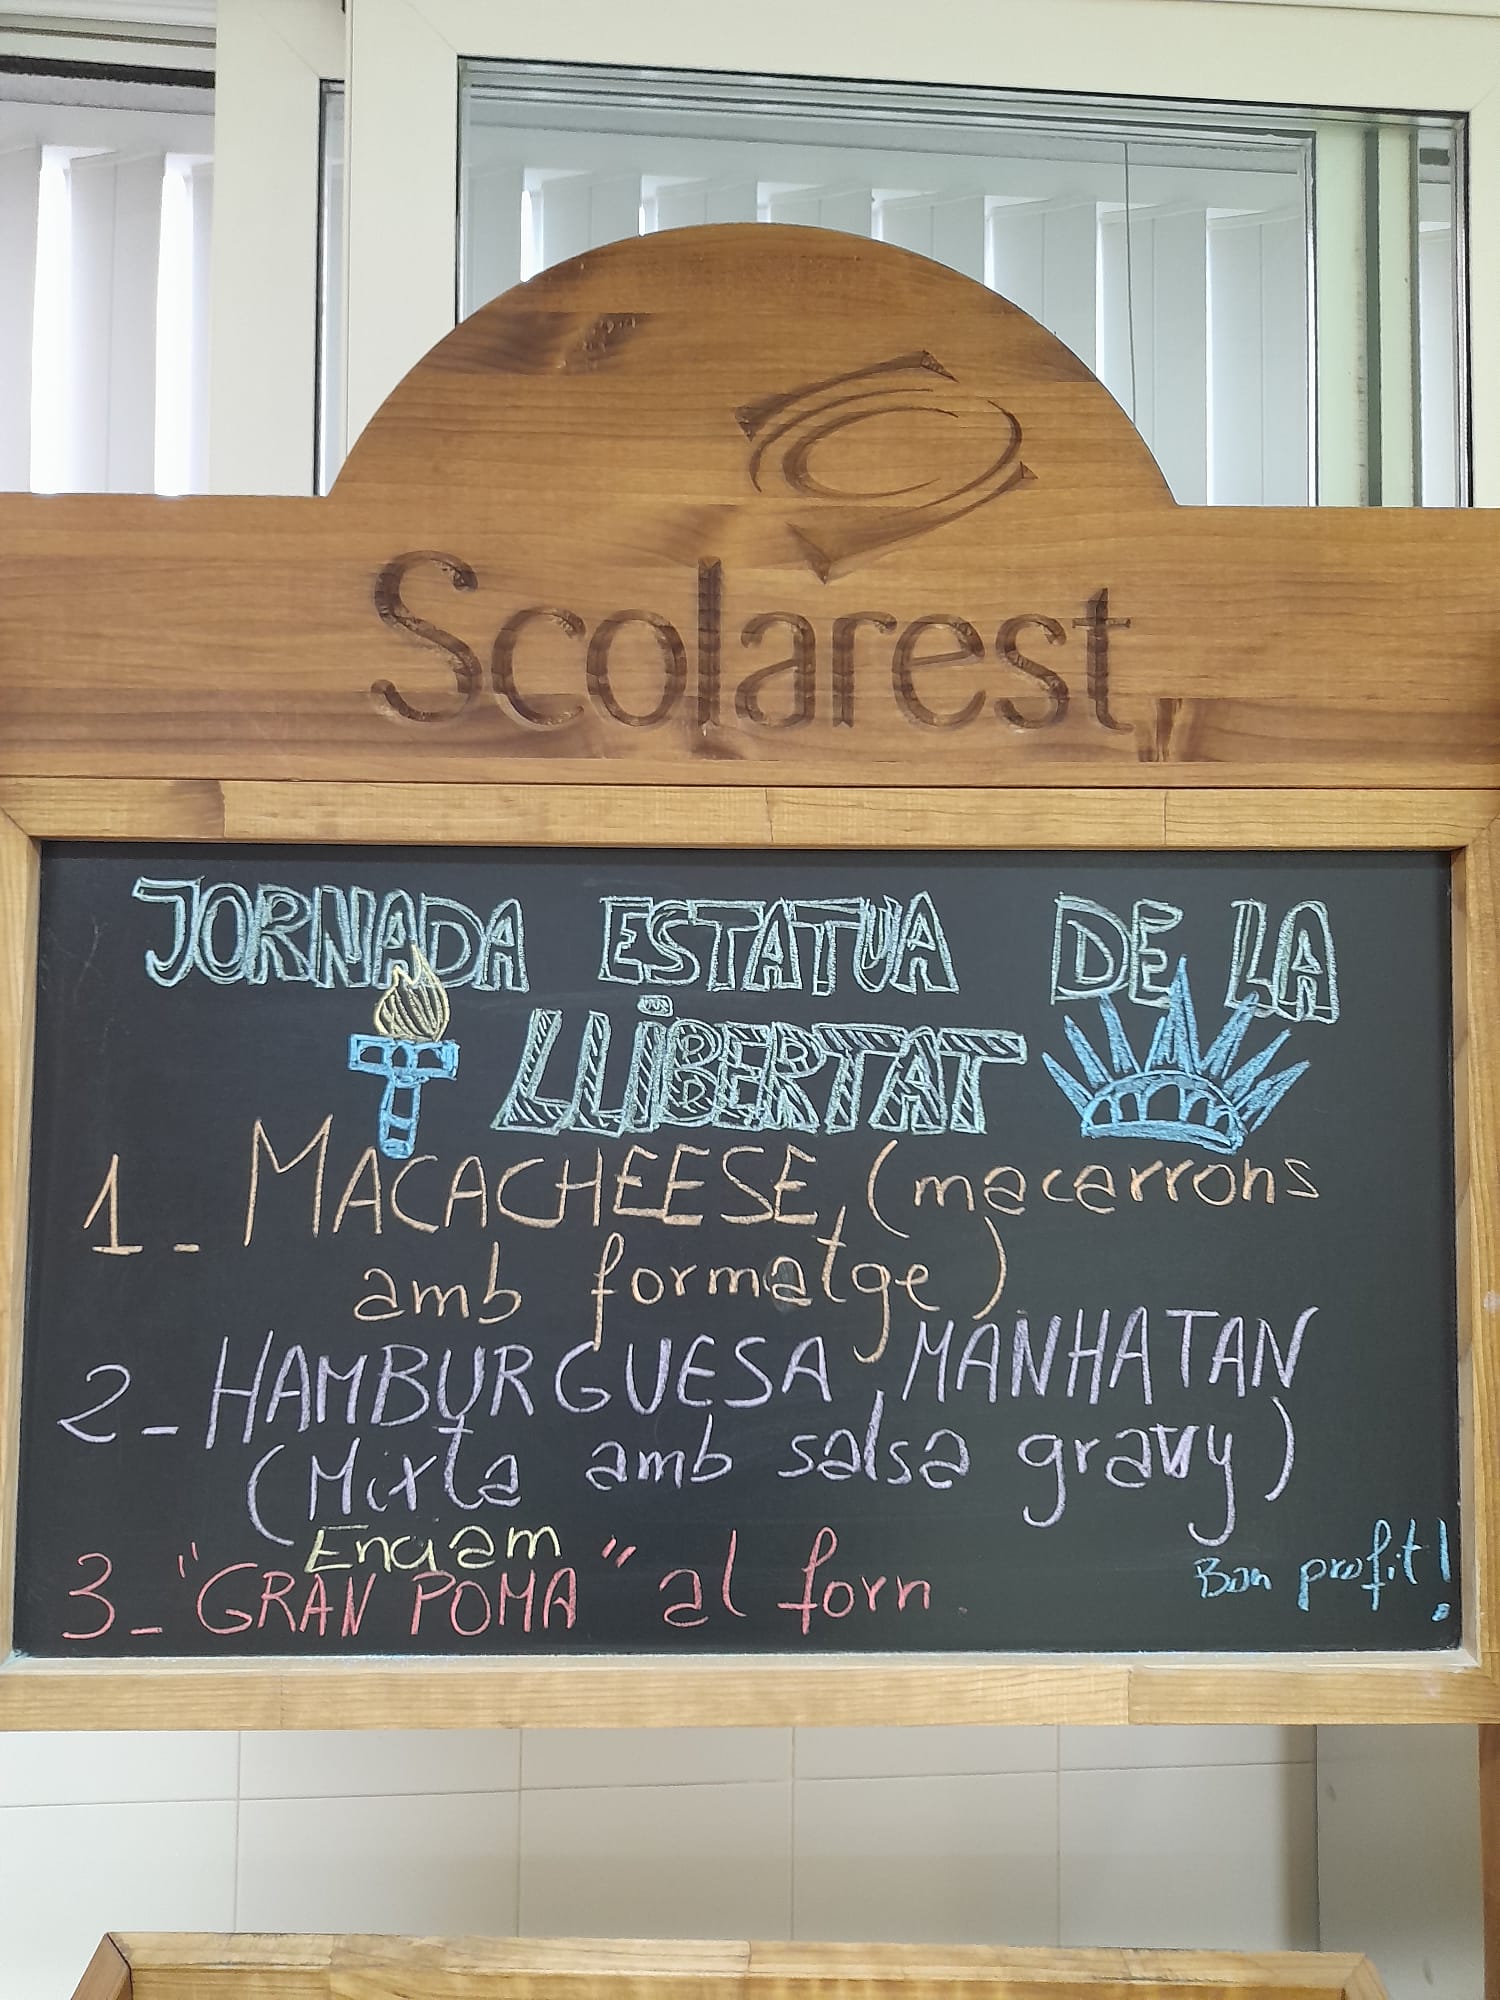 Scolarest
JORNADA ESTATUA DE LA
LLIBERTAT
1_ MACACHEESE, (macarrons
amb formatge)
2_ HAMBURGUESA MANHATAN
(Mixta amb salsa gravy)
Enciam
3_ "GRAN POMA" al forn.
Bon profit!